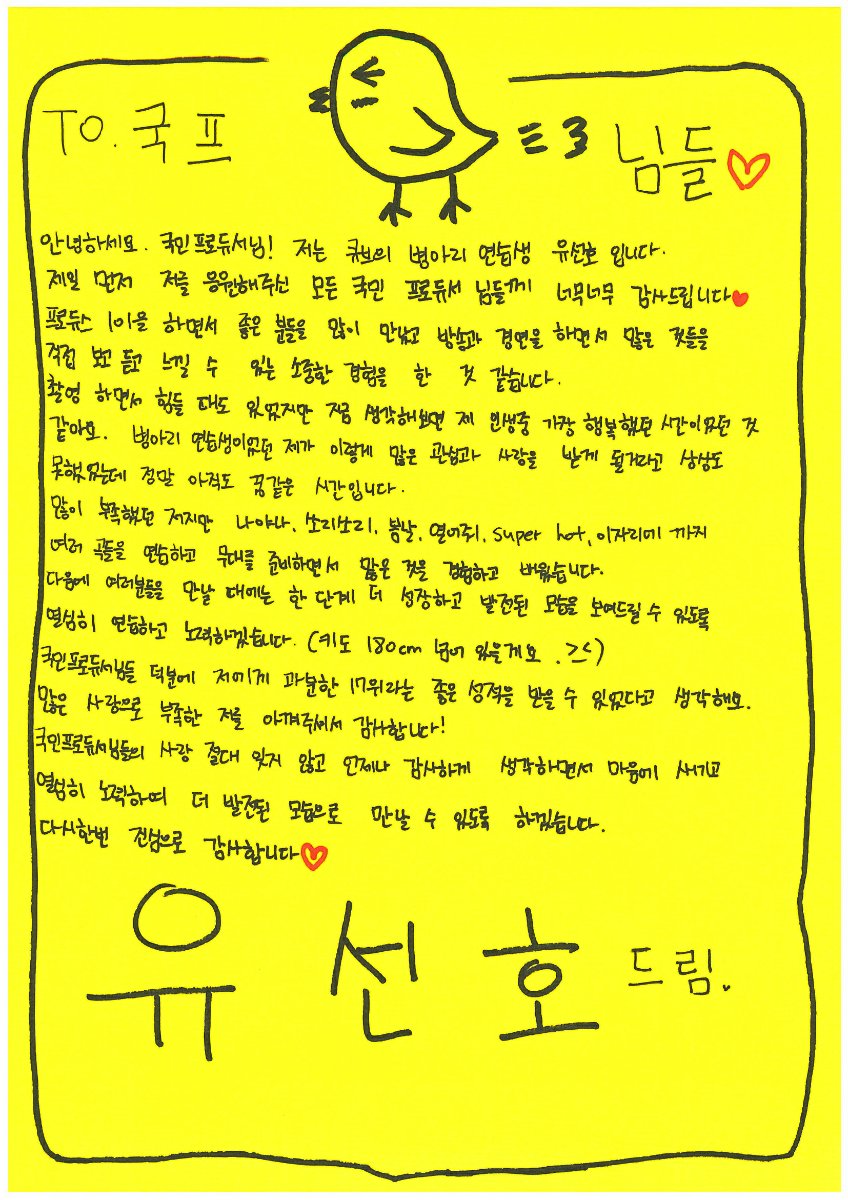 TO. 국프 님들♡
안녕하세요. 국민프로듀서님! 저는 큐브의 병아리 연습생 유선호 입니다.
제일 먼저 저를 응원해주신 모든 국민 프로듀서 님들께 너무너무 감사드립니다♥
프로듀스 101을 하면서 좋은 분들을 많이 만났고 방송과 경연을 하면서 많은 것들을
직접 보고 듣고 느낄 수 있는 소중한 경험을 한 것 같습니다.
촬영 하면서 힘들 때도 있었지만 지금 생각해보면 제 인생중 가장 행복했던 시간이었던 것
같아요. 병아리 연습생이었던 제가 이렇게 많은 관심과 사랑을 받게 될거라고 상상도
못했었는데 정말 아직도 꿈같은 시간입니다.
많이 부족했던 저지만 나야나, 쏘리쏘리, 봄날, 열어줘, super hot, 이자리에 까지
여러 곡들을 연습하고 무대를 준비하면서 많은 것을 경험하고 배웠습니다.
다음에 여러분들을 만날 때에는 한 단계 더 성장하고 발전된 모습을 보여드릴 수 있도록
열심히 연습하고 노력하겠습니다. (키도 180cm 넘어 있을게요 .>_<)
국민프로듀서님들 덕분에 저에게 과분한 17위라는 좋은 성적을 받을 수 있었다고 생각해요.
많은 사랑으로 부족한 저를 아껴주셔서 감사합니다!
국민프로듀서님들의 사랑 절대 잊지 않고 언제나 감사하게 생각하면서 마음에 새기고
열심히 노력하며 더 발전된 모습으로 만날 수 있도록 하겠습니다.
다시한번 진심으로 감사합니다♡
유선호 드림.